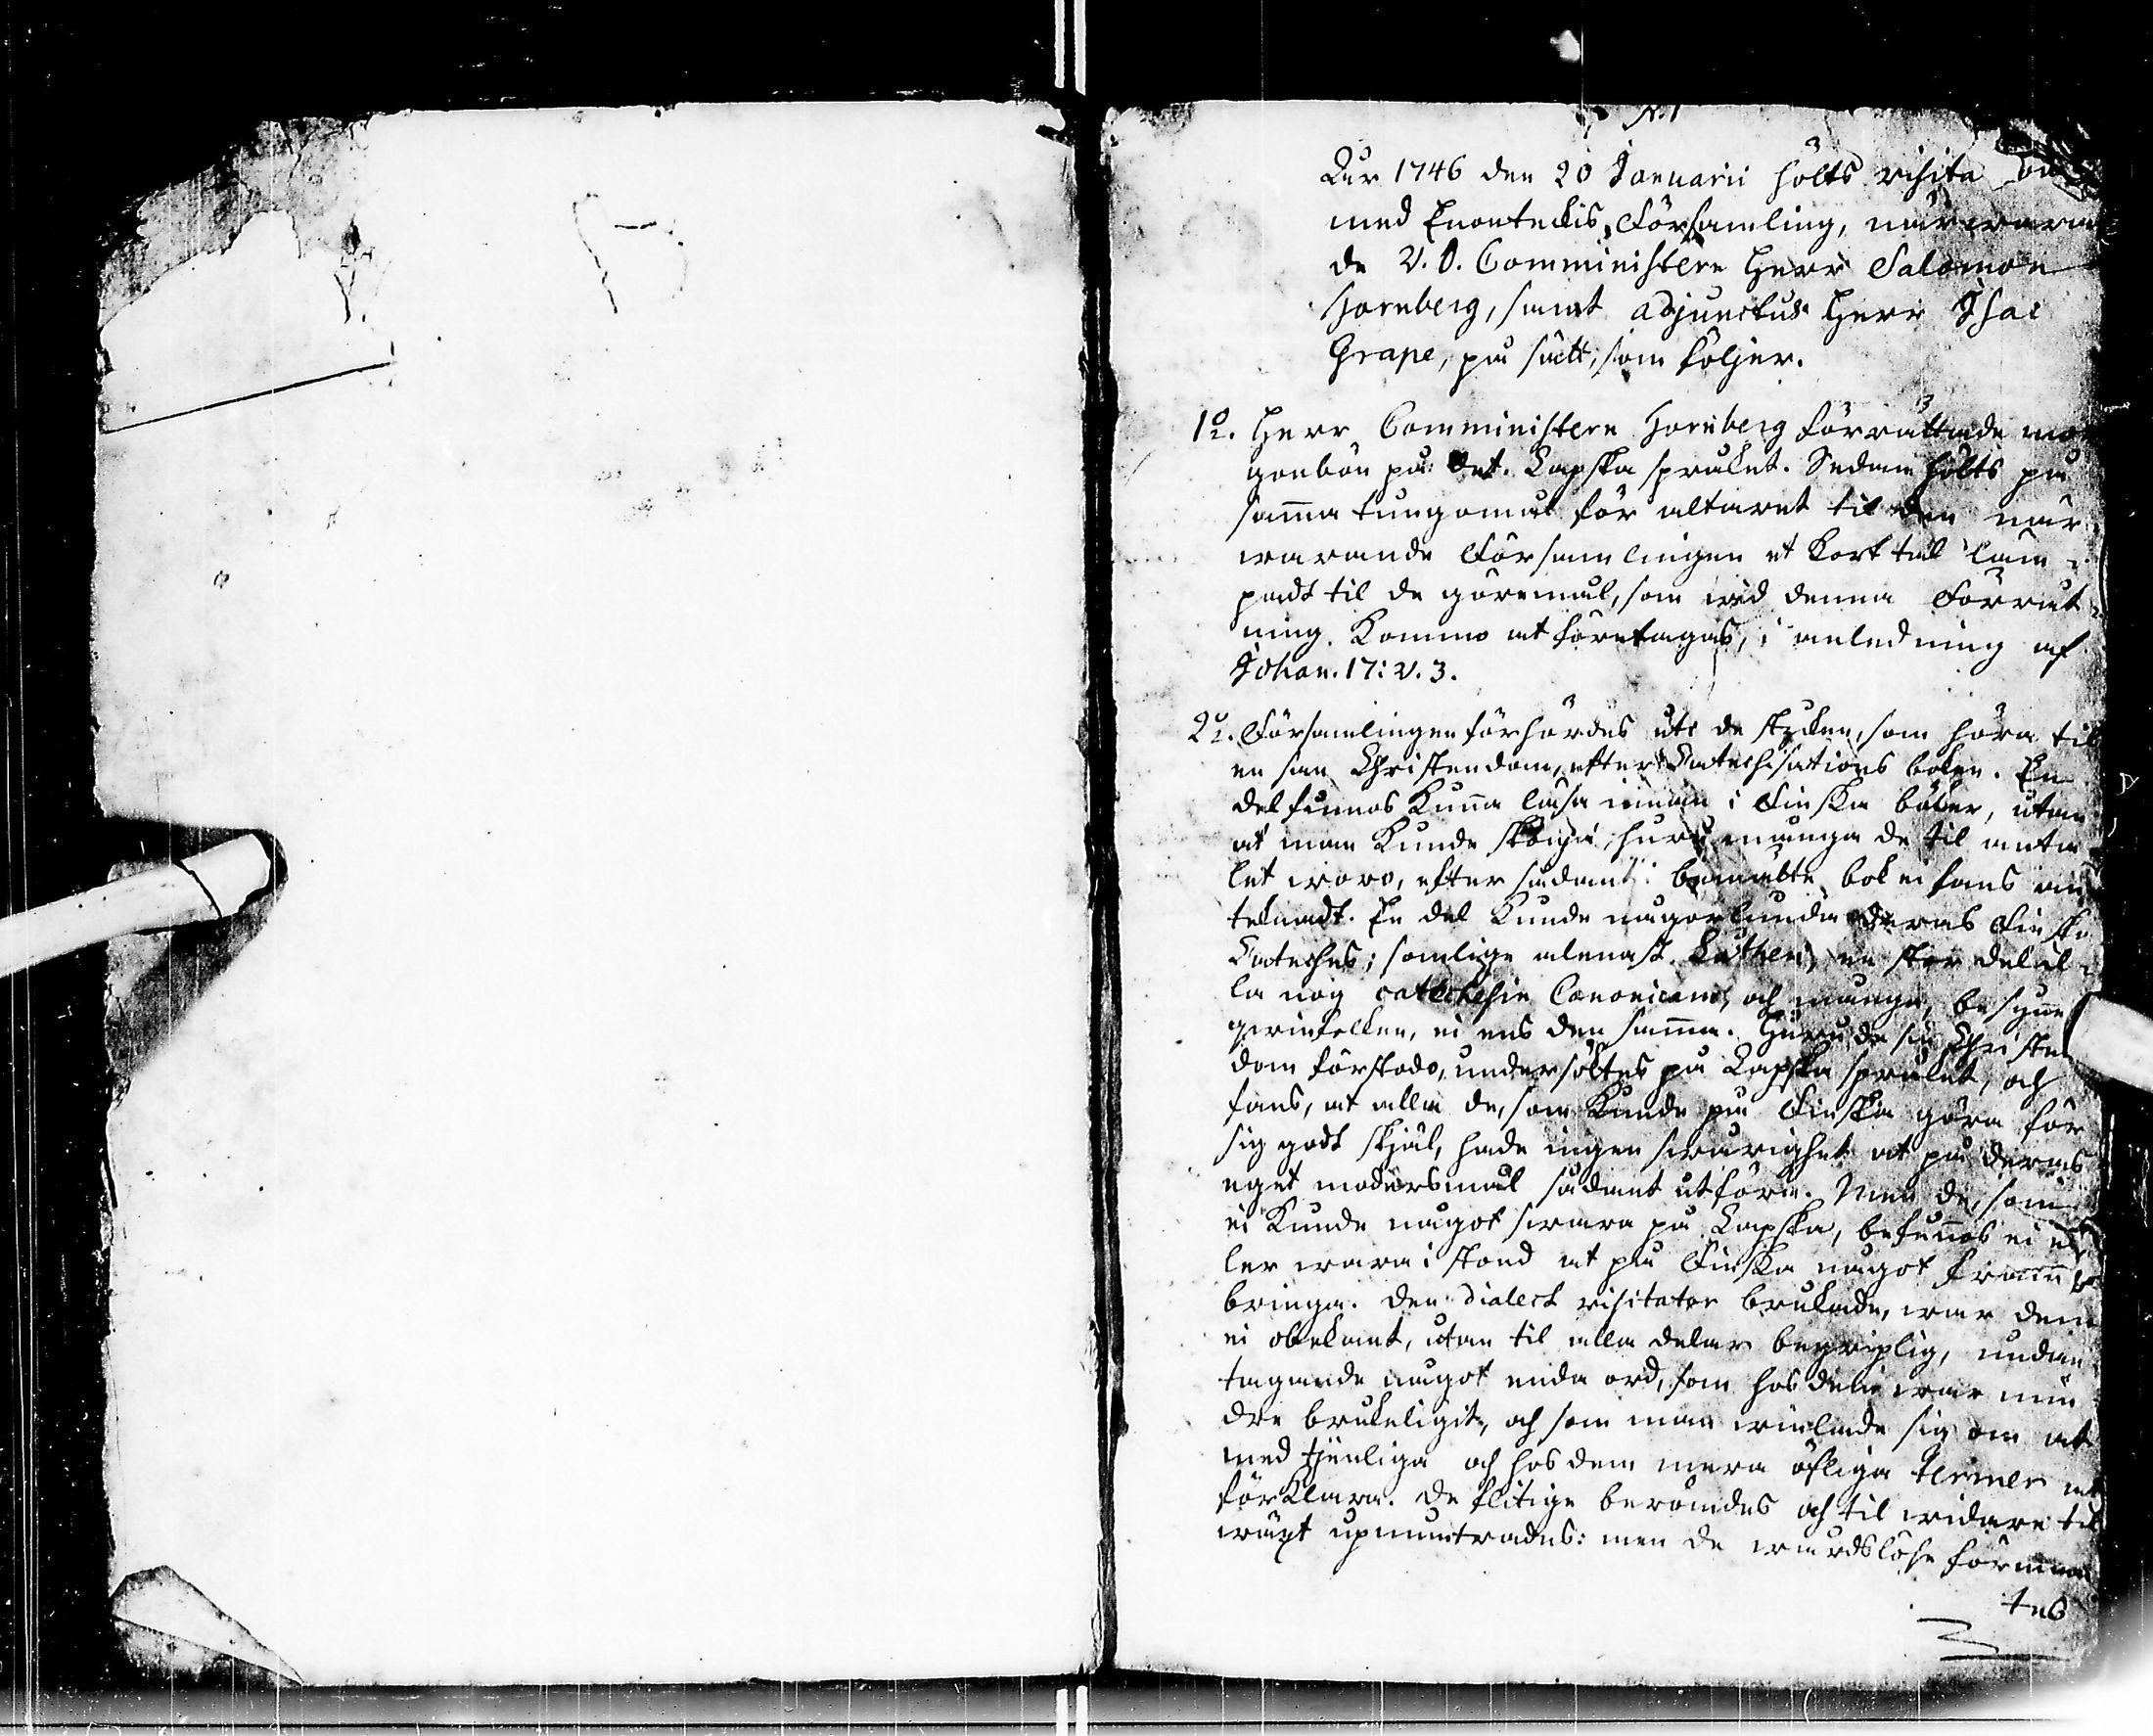 Åhr 1746 den 20 Januarii hölts visita
med Enonteckis Församling, närwaran
de V. D. Comministern Herr Salomon
Hornberg, samt adjunctus Herr Isac
Grape, på sätt, som följer.
1o. Herr Comministern Hornberg förrättade mor
gonbön på det Lapska språket. Sedan hölts på
samma tungomål för altaret til den när
warande Församlingen et kort tal läm
padt til de göremål, som wid denna Förrät
ning kommo at företagas, i anledning af
Johan. 17: v. 3.
2o. Församlingen förhördes uti de stycken, som höra til
en san Christendom, efter Catechisations boken. En
del funnos kunna läsa innan i Finska böker, utan
at man kunde skönja, huru många de til anta
let woro, efter sådant i bemälte bok ei fans an
teknadt. En del kunde någorlunda deras Finska
Cateches; somlige alenast Lutheri, en stor del il
la nog catechesin Canonicam, och många, besyn
qwinfolken, ei ens den samma. Huru de sin Christen
dom förstodo, undersöktes på Lapska språket, och
fans, at alla de, som kunde på Finska göra för
sig godt skjäl, hade ingen swårighet at på deras
eget modersmål sådant utföra. Men de, som
ei kunde något swara på Lapska, befunnos ei el
ler wara i stånd at på Finska något fram
bringa. Den dialect visitator brukade, war dem
ei obekant, utan til alla delar begriplig, undan
tagande något enda ord, som hos dem war min
dre brukeligit, och som man winlade sig om at
med tjenliga och hos dem mera öfliga termer at
förklara. De flitige berömdes och til widare til
wäxt upmuntrades: men de wårdslöse förma
tes